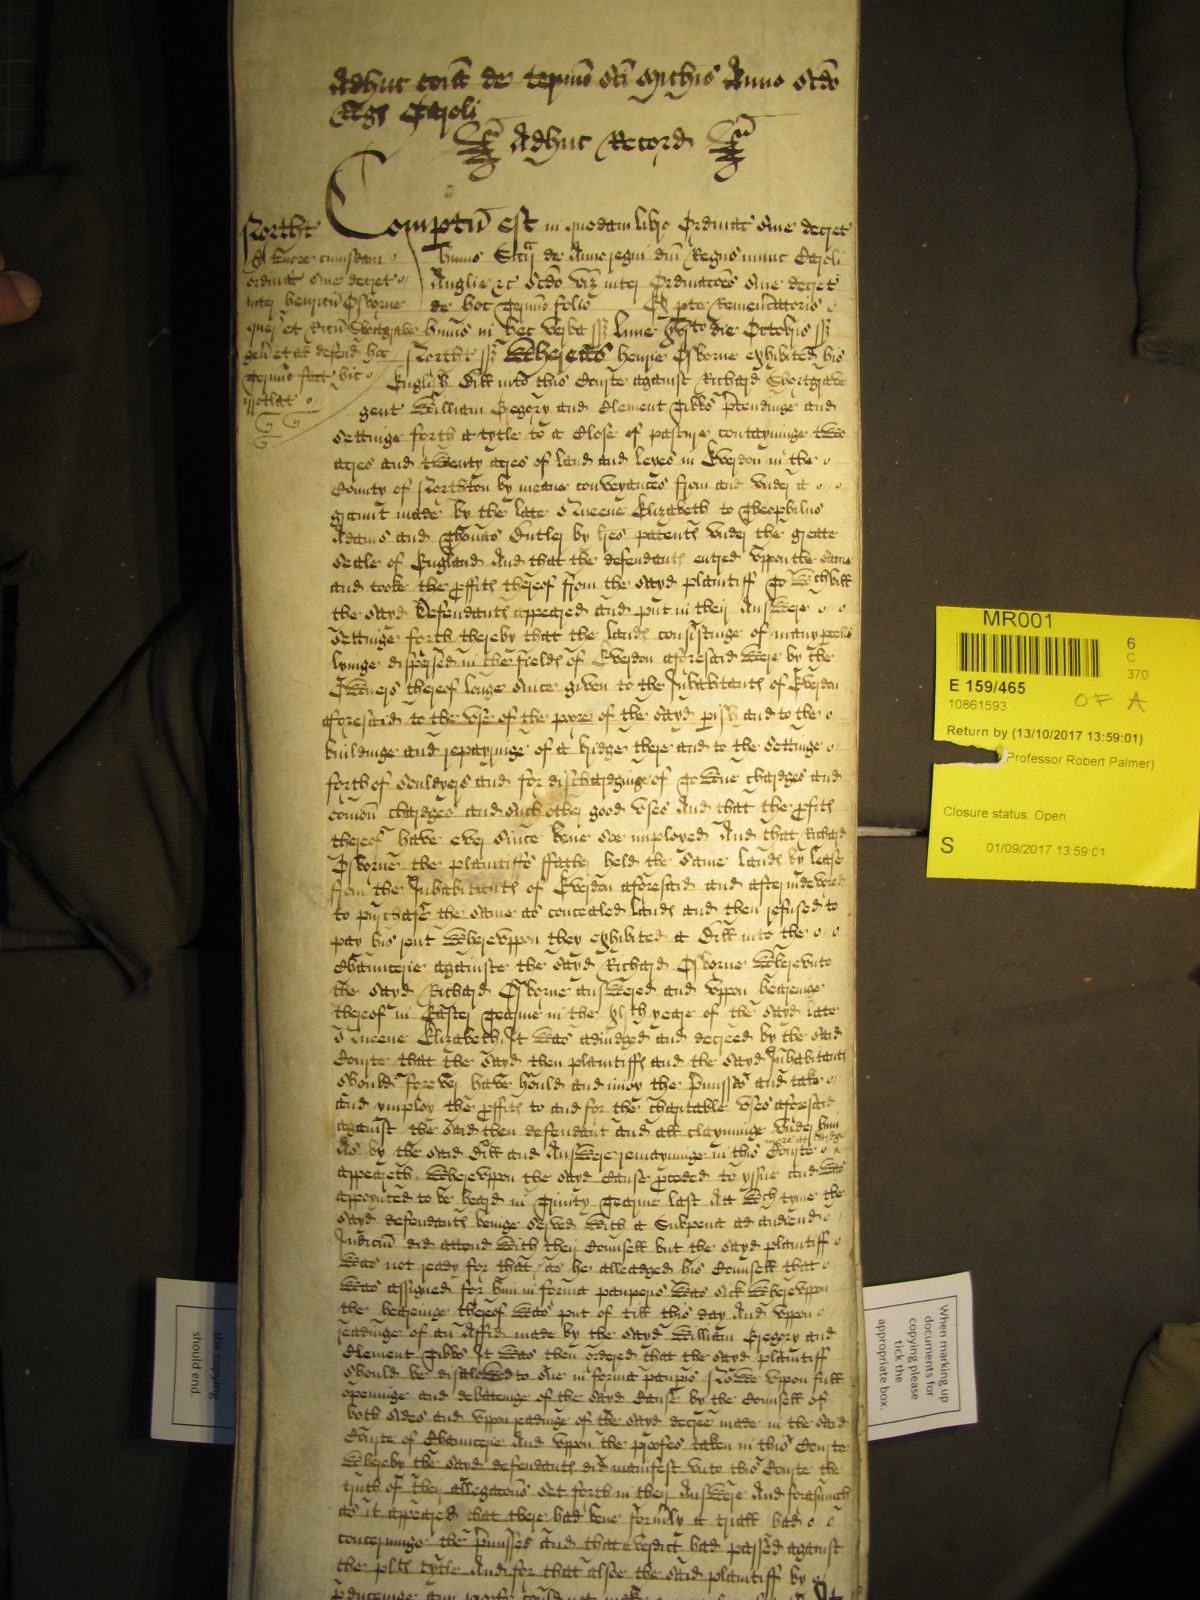 Adhuc coïa de termïo sci Michis Anno scdo
Rgs Caroli
Adhuc Record
Northt
A tenore cuiusdam
ordinac sive decret
inter henricu Osborne
quer et Ricu Shortgrave
gen et al defend hoc
termio fact hic
irrotlat
Comptu est in quodam libro Ordinac sive decret
huius Sccij de Anno regni dni Regis nunc Caroli
Anglie &c scdo viz inter Ordinacoes sive decret
de hoc termio folio Ex pte Rememoratoris
huius in hec verba ss lune die Octobris ss
Northt ss Whereas henrie Osborne exhibited his
English Bill into this Courte against Richard Shortgrave
gent William Gregory and Clement Gibbs ptendinge and
settinge forth a tytle to a Close of pasture contayninge two
acres and twenty acres of land and leyes in Everdon in the
County of Northton by meane conveyances from and under a
graunt made by the late Queene Elizabeth to Theophilus
Adams and Thomas Butler by lres patents under the greate
Seale of England And that the defendants entred uppon the same
and tooke the pffitts thereof from the sayd plaintiff To wch bill
the sayd Defendants appeared and put in their Answere
settinge forth thereby that the lands consistinge of many pcells
lyinge dispersed in the fields of Everdon aforesaid were by the
Owners thereof longe since given to the Inhabitants of Everdon
aforesaid to the use of the poore of the sayd pish and to the
buildinge and repayringe of a bridge there and to the settinge
forth of Souldyers and for dischardginge of Towne chardges and
comon chardges and such other good uses And that the pfitts
thereof have ever since bene soe imployed And that Richard
Osborne the plaintiffs ffather held the same lands by lease
from the Inhabitants of Everdon aforesaid and after indevored
to purchase the same as concealed lands and then refused to
pay his rent Whereuppon they exhibited a Bill into the
Chauncerie againste the sayd Richard Osborne Whereunto
the sayd Richard Osborne answered and uppon hearinge
thereof in Easter Tearme in the xlth yeare of the sayd late
Queene Elizabeth It was adiudged and decreed by the said
Courte that the sayd then plaintiffs and the sayd Inhabitants
should forever have hould and inioy the pmisses and take
and ymploy the pffitts to and for the charitable uses aforesaid
against the said then defendant and all clayminge under him
As by the said Bill and Answere remayninge in this Courte more att lardge
appeareth Whereuppon the sayd Cause pceded to yssue and was
appoynted to be heard in Trinity Tearme last Att wch tyme the
sayd defendants beinge served with a Subpena ad audiend
Iudiciu did attend with their Counsell but the sayd plaintiff
was not ready for that as he alleadged his Counsell that
was assigned for him in forma pauperis was sick Whereuppon
the hearinge thereof was put of till this day And uppon
readinge of an Affid made by the sayd William Gregory and
Clement Gibbs It was then ordered that the sayd plaintiff
should be disalowed to sue in forma paupis Nowe uppon full
openinge and debateinge of the sayd Cause by the Counsell of
both sides and uppon readinge of the sayd decree made in the said
Courte of Chauncerie And uppon the proofes taken in this Courte
Whereby the sayd defendants did manifest unto this Courte the
truth of their allegacons set forth in their Answere And forasmuch
as it appeared that there had bene formly a triall had
concerninge the pmisses and that a verdict had passed against
the plts tytle And for that alsoe the said plaintiff by
pducinge any
MR001
6
C
370
E 159/465
10861593
OF A
Return by (13/10/2017 13:59:01)
Professor Robert Palmer)
Closure status: Open
S 01/09/2017 13:59:01
the copying
should end
When marking up
documents for
copying please
tick the
appropriate box.